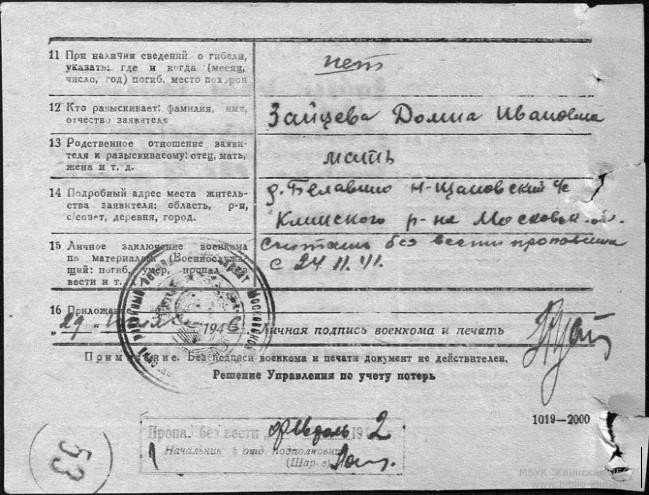 11 При наличии сведений о гибели,
указать: где и когда (месяц,
число, год) погиб, место похорон
нет
12 Кто разыскивает: фамилия, имя,
отчество заявителя
Зайцева Домна Ивановна
13 Родственное отношение заяви-
теля к разыскиваемому: отец, мать,
жена и т. д.
мать
14 Подробный адрес места житель-
ства заявителя: область, р-н,
с/совет, деревня, город.
д. Белавино Н-Щаповский с/с
Клинского р-на Московской обл.
15 Личное заключение военкома
по материалам (Военнослужа-
щий: погиб, умер, пропал без
вести и т. д.
считать без вести пропавшим
с 24.11.41.
16 Приложение
"29" 1946 г. Личная подпись военкома и печать
Примечание. Без подписи военкома и печати документ не действителен.
Решение Управления по учету потерь
1019—2000
Пропа. без вести февраль 1942
Начальник отд. подполковник
(Шар
53
МБУК "Клинская ЦБС"